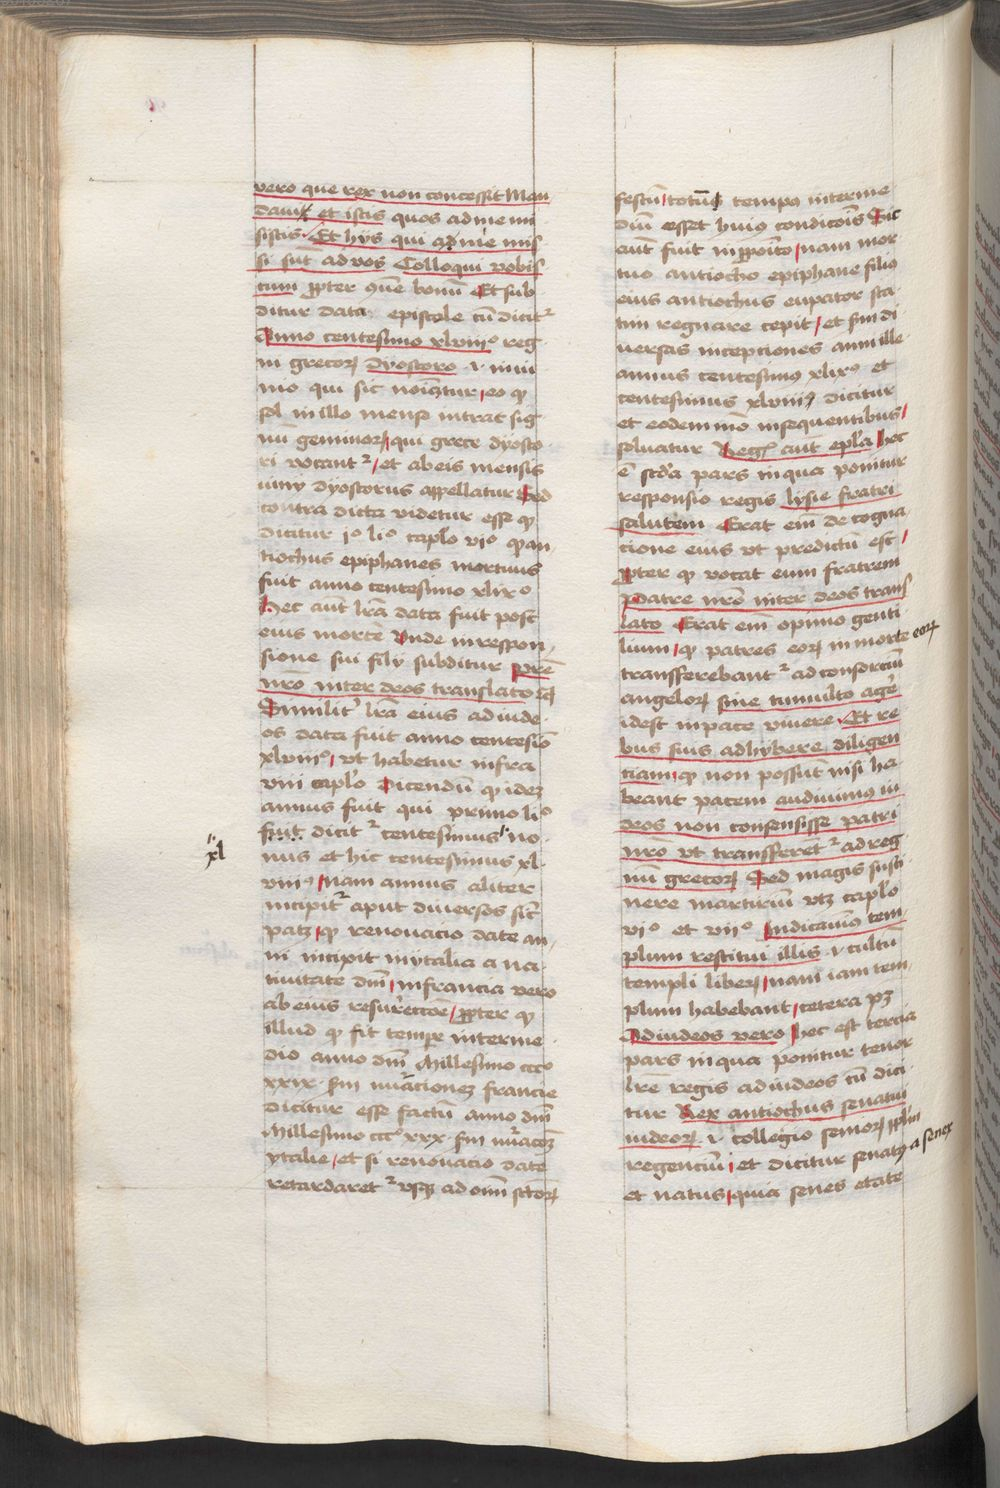 vero que rex non concessit Man
davi et istis quos ad me mi
sistis Et hijs qui ad me mis
si sūt ad vos Colloqui vobis
cum ꝓpter ꝯūe bonū Et sub
ditur data epistole cū dicitᷣ
Anno centesimo xlviiiº reg
ni grecoꝝ dyostoro .i. iuni
nio qui sic noīatur eo ꝙ
sol in illo mense intrat sig
nū geminoꝝ qui grece dyosto
ri vocantᷣ et ab eis mensis
iuny dyostorus appellatur Sed
contra dicta videtur esse ꝙ
dicitur jº liº caplo viº ꝙ an
tiochus epiphanes mortuus
fuit anno centesimo xlixº
Hec aūt lr̄a data fuit post
eius mortē Unde in respon
sione sui filij subditur pr̄e
nr̄o inter deos translato ⁊cꝫ
Similitᷣ lr̄a eius ad iude
os data fuit anno centesīo
xlviiiº vt habetur infra
viii caplo Dicendū ꝙ idez
annus fuit qui primo liº
fuit dicitᷣ centesimus no
xl
nus et hic centesimus xl
viiiº Nam annus aliter
incipitᷣ aput diuersos sic̄
patꝫ ꝙ renouacio date an
ni incipit in ytalia a na
tiuitate dnī in francia vero
ab eius resurrectōe ꝓpter ꝙ
illud ꝙ fit tempe interme
dio anno dnī Millesimo cccº
xxix scdm nūacionez francie
dicitur esse factū anno dnī
Millesimo cccº xxx scdm nūacōz
ytalie et si renouacio date
retardaretᷣ vsqꝫ ad omī sctoꝝ
festū totū tempus interme
diū esset huiꝯ condicōis Sic
aūt fuit in ꝓposito nam mor
tuo antiocho epiphane filiꝯ
eius antiochus eupator sta
tim regnare cepit et scdm di
uersas incepciones anni ille
annus centesimꝯ xlixꝯ et
centesimus xlviiiꝯ dicitur
et eodem mō in sequentibus
soluatur Regꝭ aūt epl̄a Hec
ē scd̄a pars in qua ponitur
responsio regis lysie fratri
salutem Erat em̄ de cogna
cione eius vt predictū est
ꝓpter ꝙ vocat eum fratrem
Patre nr̄o inter deos trans
lato Erat em̄ opinio genti
lium ꝙ patres eoꝝ in morte eoꝝ
transfferebantᷣ ad consorciū
angeloꝝ sine tumulto agē
idest in pace viuere Et re
bus suis adhybere diligen
ciam ꝙ non possūt nisi ha
beant pacem audiuimus iu
deos non consensisse patri
nr̄o vt transfferētᷣ ad reg
nū grecoꝝ Sed magis susti
nere martiriū vtꝫ caplo
viº et viiº Iudicauimꝯ tem
plum restitui illis .i. cultū
templi liberꝫ nam iam tem
plum habebant cetera pꝫ
Ad iudeos vero Hec est tercia
pars in qua ponitur tenor
lr̄e regis ad iudeos cū dici
tur Rex antiochus senatui
iudeoꝝ .i. collegio senioꝝ pplm
regenciū et dicitur senatꝯ a senex
et natus quia senes etate